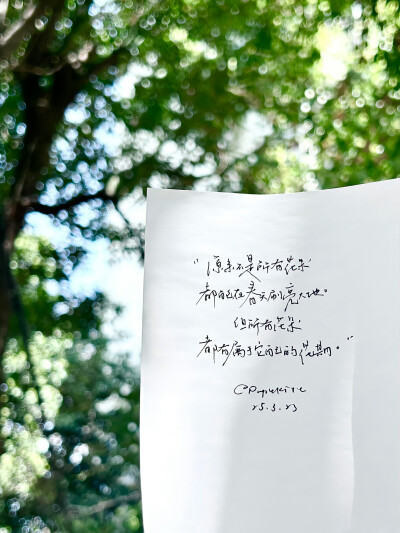 “原来不是所有花朵
都能在春天刷亮大地。
但所有花朵
都有属于它自己的花期。”
25.3.23